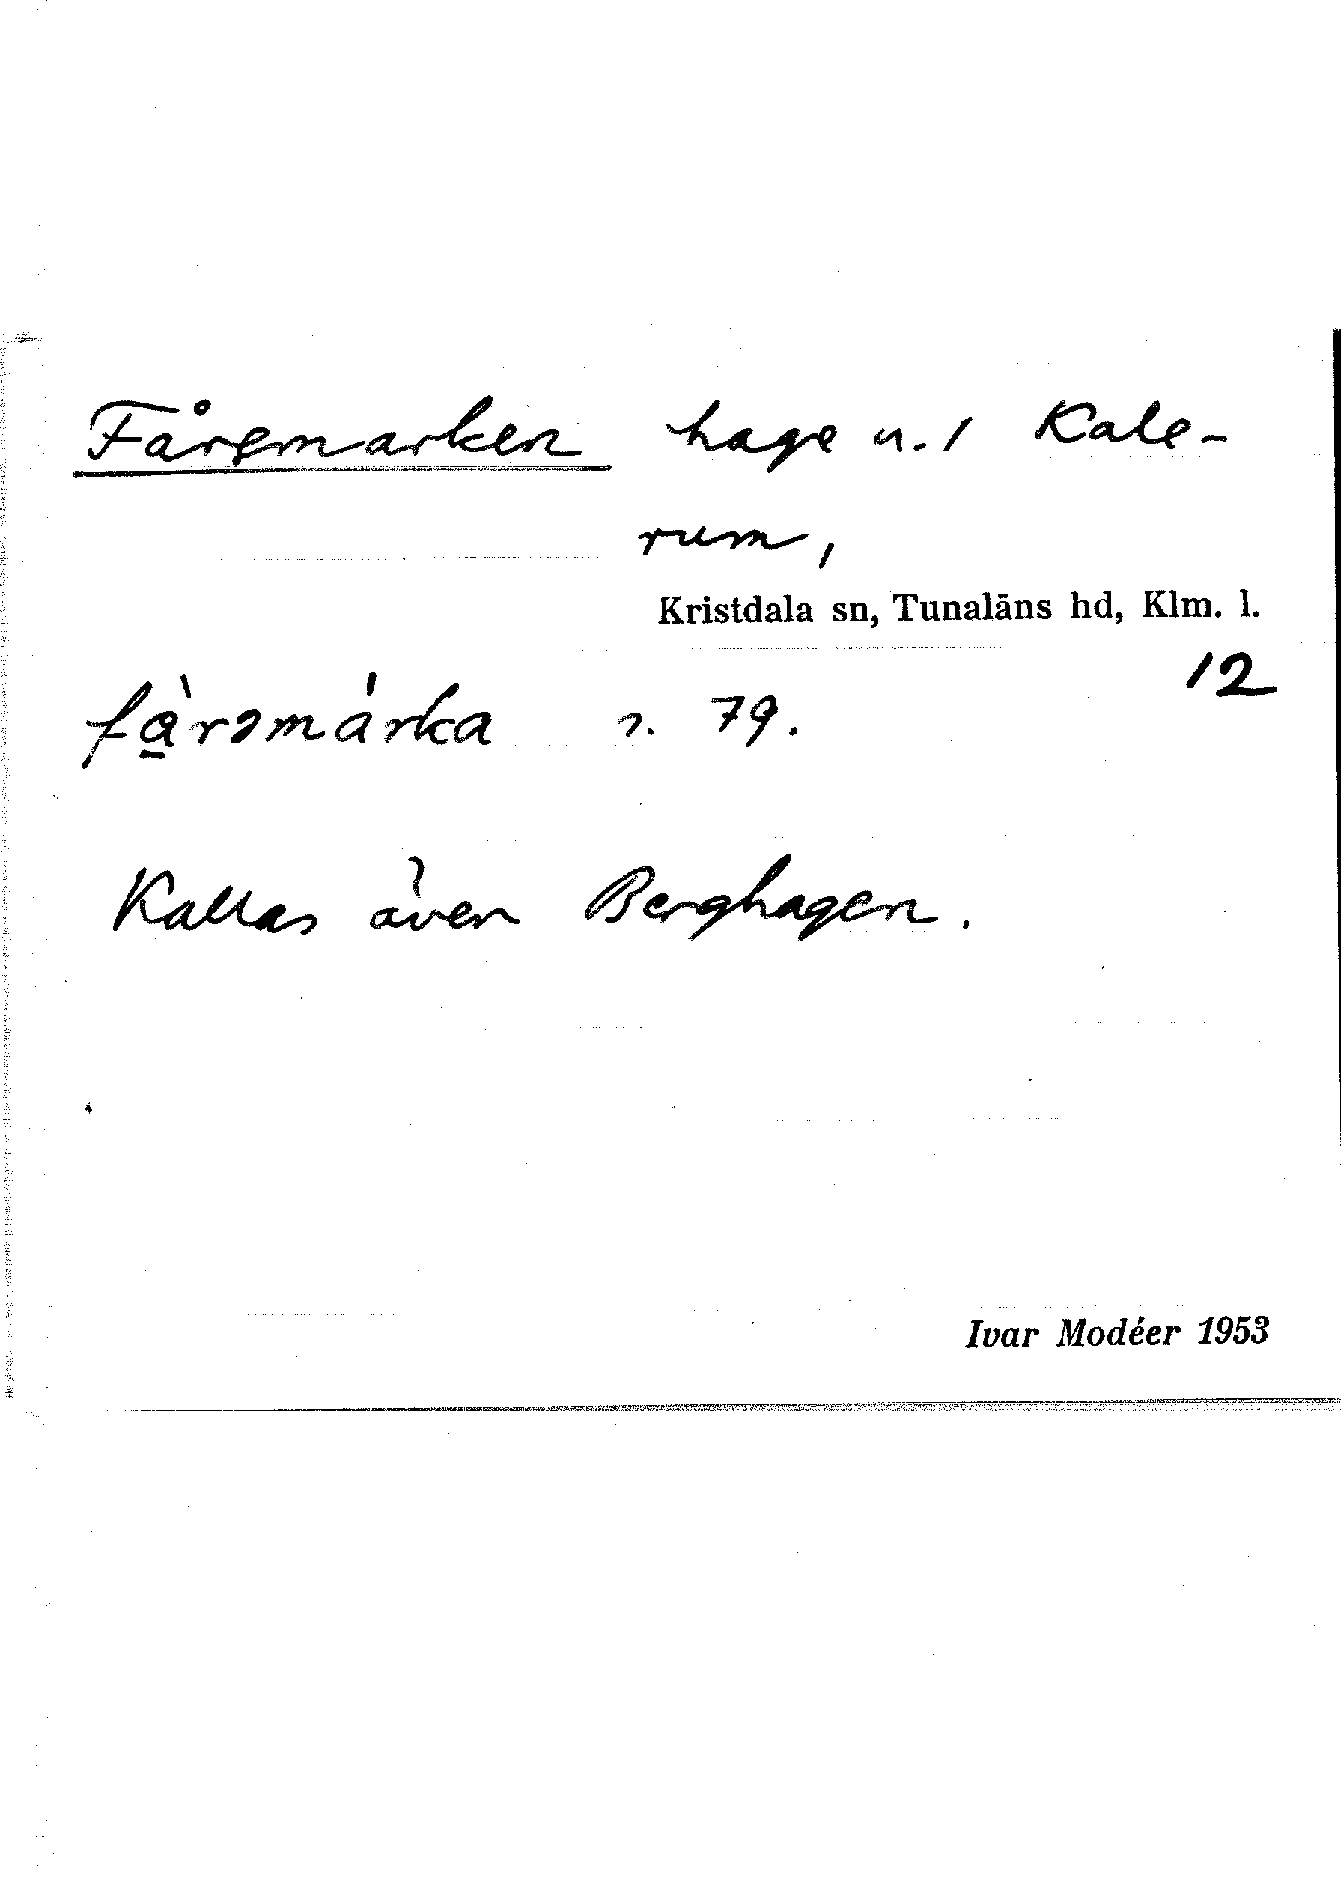 Fåremarken hage u. 1 Kale-
rum,
Kristdala sn, Tunaläns hd, Klm. l.
12
fà̱rəmárka n. 79.
Kallas även Berghagen.
Ivar Modéer 1953